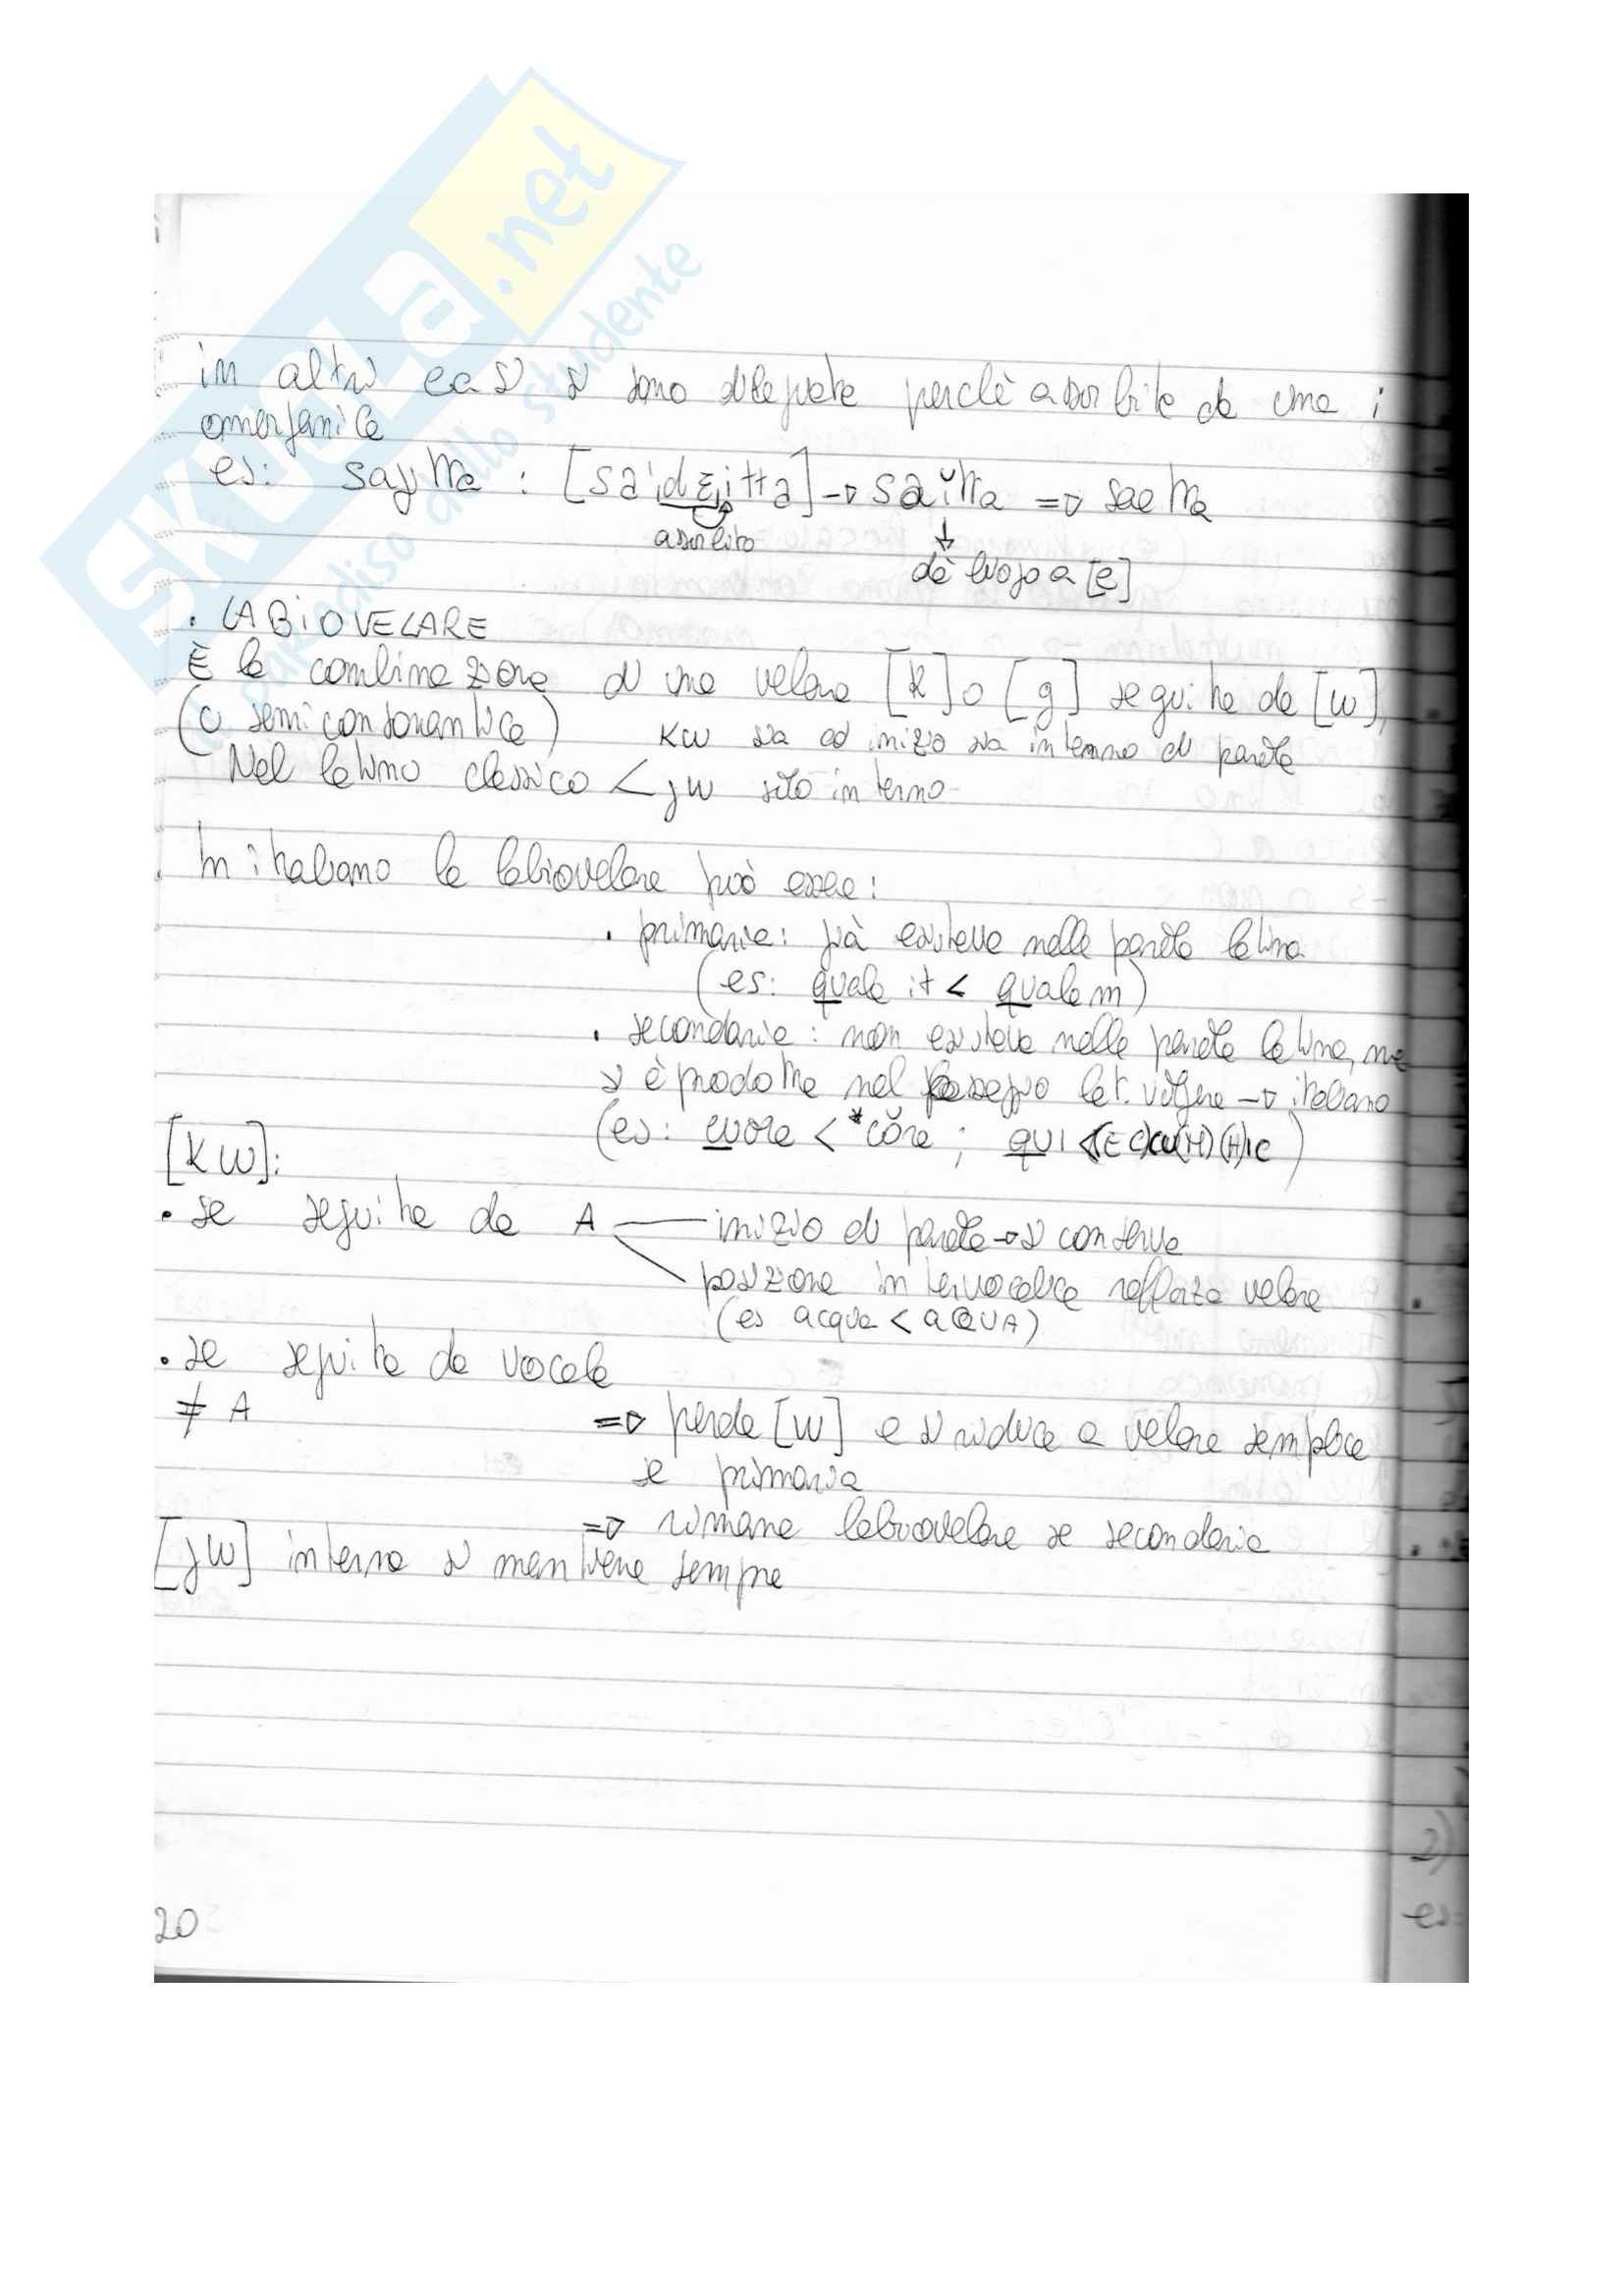 SKUOLA.net
il paradiso dello studente
in altri casi si sono dileguate perchè assorbite da una i
omorganica
es: sagitta : [sa'idʒitta] → saĭtta => saetta
assorbito
dà luogo a [e]
. LABIOVELARE
È la combinazione di una velare [k] o [g] seguita da [w],
(o semiconsonantica)
kw sia ad inizio sia interno di parola
Nel latino classico < gw solo interno
In italiano la labiovelare può essere:
. primaria: già esisteva nella parola latina
(es: quale it < qualem)
. secondaria: non esisteva nella parola latina, ma
si è prodotta nel passaggio lat. volgare → italiano
(es: cuore < *cŏre ; qui < (EC)CU(M) (H)IC)
[KW]:
. se seguita da A
inizio di parola → si conserva
posizione intervocalica rafforza velare
(es acqua < AQUA)
. se seguita da vocale
≠ A
=> perde [w] e si riduce a velare semplice
se primaria
=> rimane labiovelare se secondaria
[gW] interna si mantiene sempre
20
2)
es: